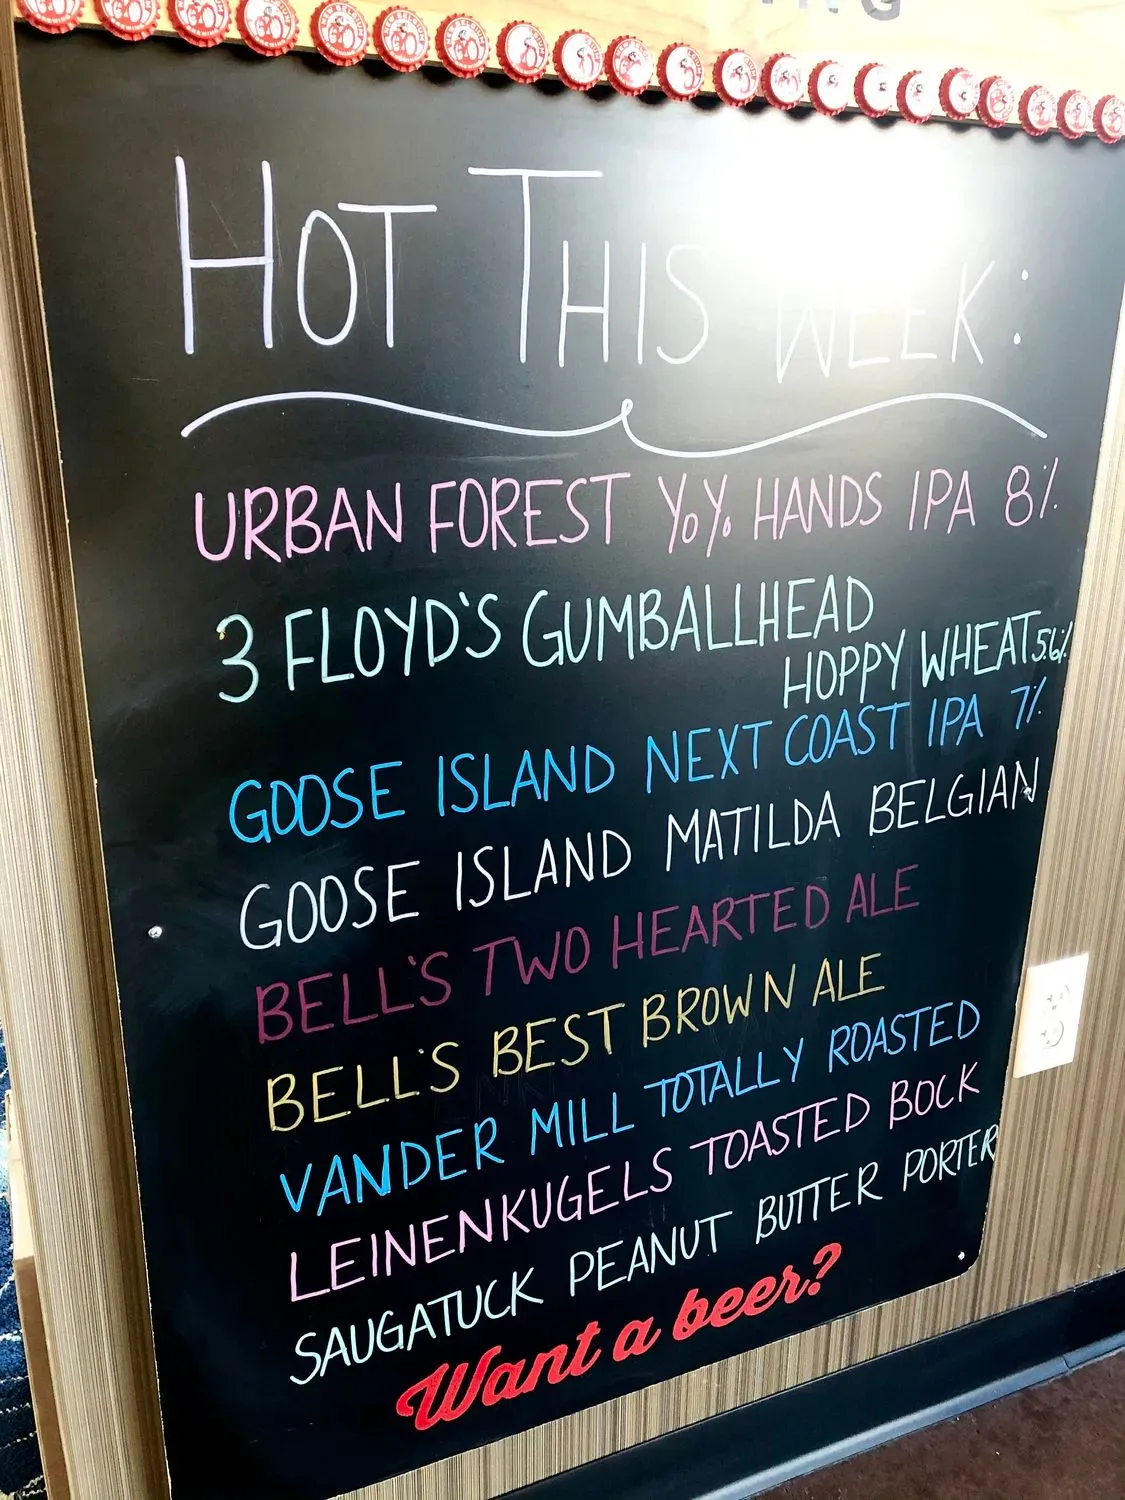 HOT THIS WEEK:
URBAN FOREST Y.Y. HANDS IPA 8%
3 FLOYD'S GUMBALLHEAD
HOPPY WHEAT 5.6%
GOOSE ISLAND NEXT COAST IPA 7%
GOOSE ISLAND MATILDA BELGIAN
BELL'S TWO HEARTED ALE
BELL'S BEST BROWN ALE
VANDER MILL TOTALLY ROASTED
LEINENKUGELS TOASTED BOCK
SAUGATUCK PEANUT BUTTER PORTER
Want a beer?